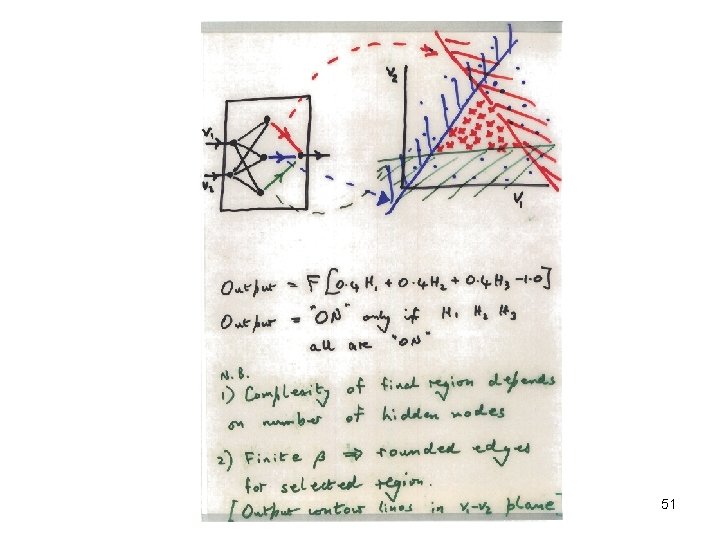 V2
V1
V2
V1
Output = F[0.4 H1 + 0.4 H2 + 0.4 H3 - 1.0]
Output = "ON" only if H1 H2 H3
all are "ON"
N.B.
1) Complexity of final region depends
on number of hidden nodes
2) Finite β ⇒ rounded edges
for selected region.
[Output contour lines in V1-V2 plane]
51